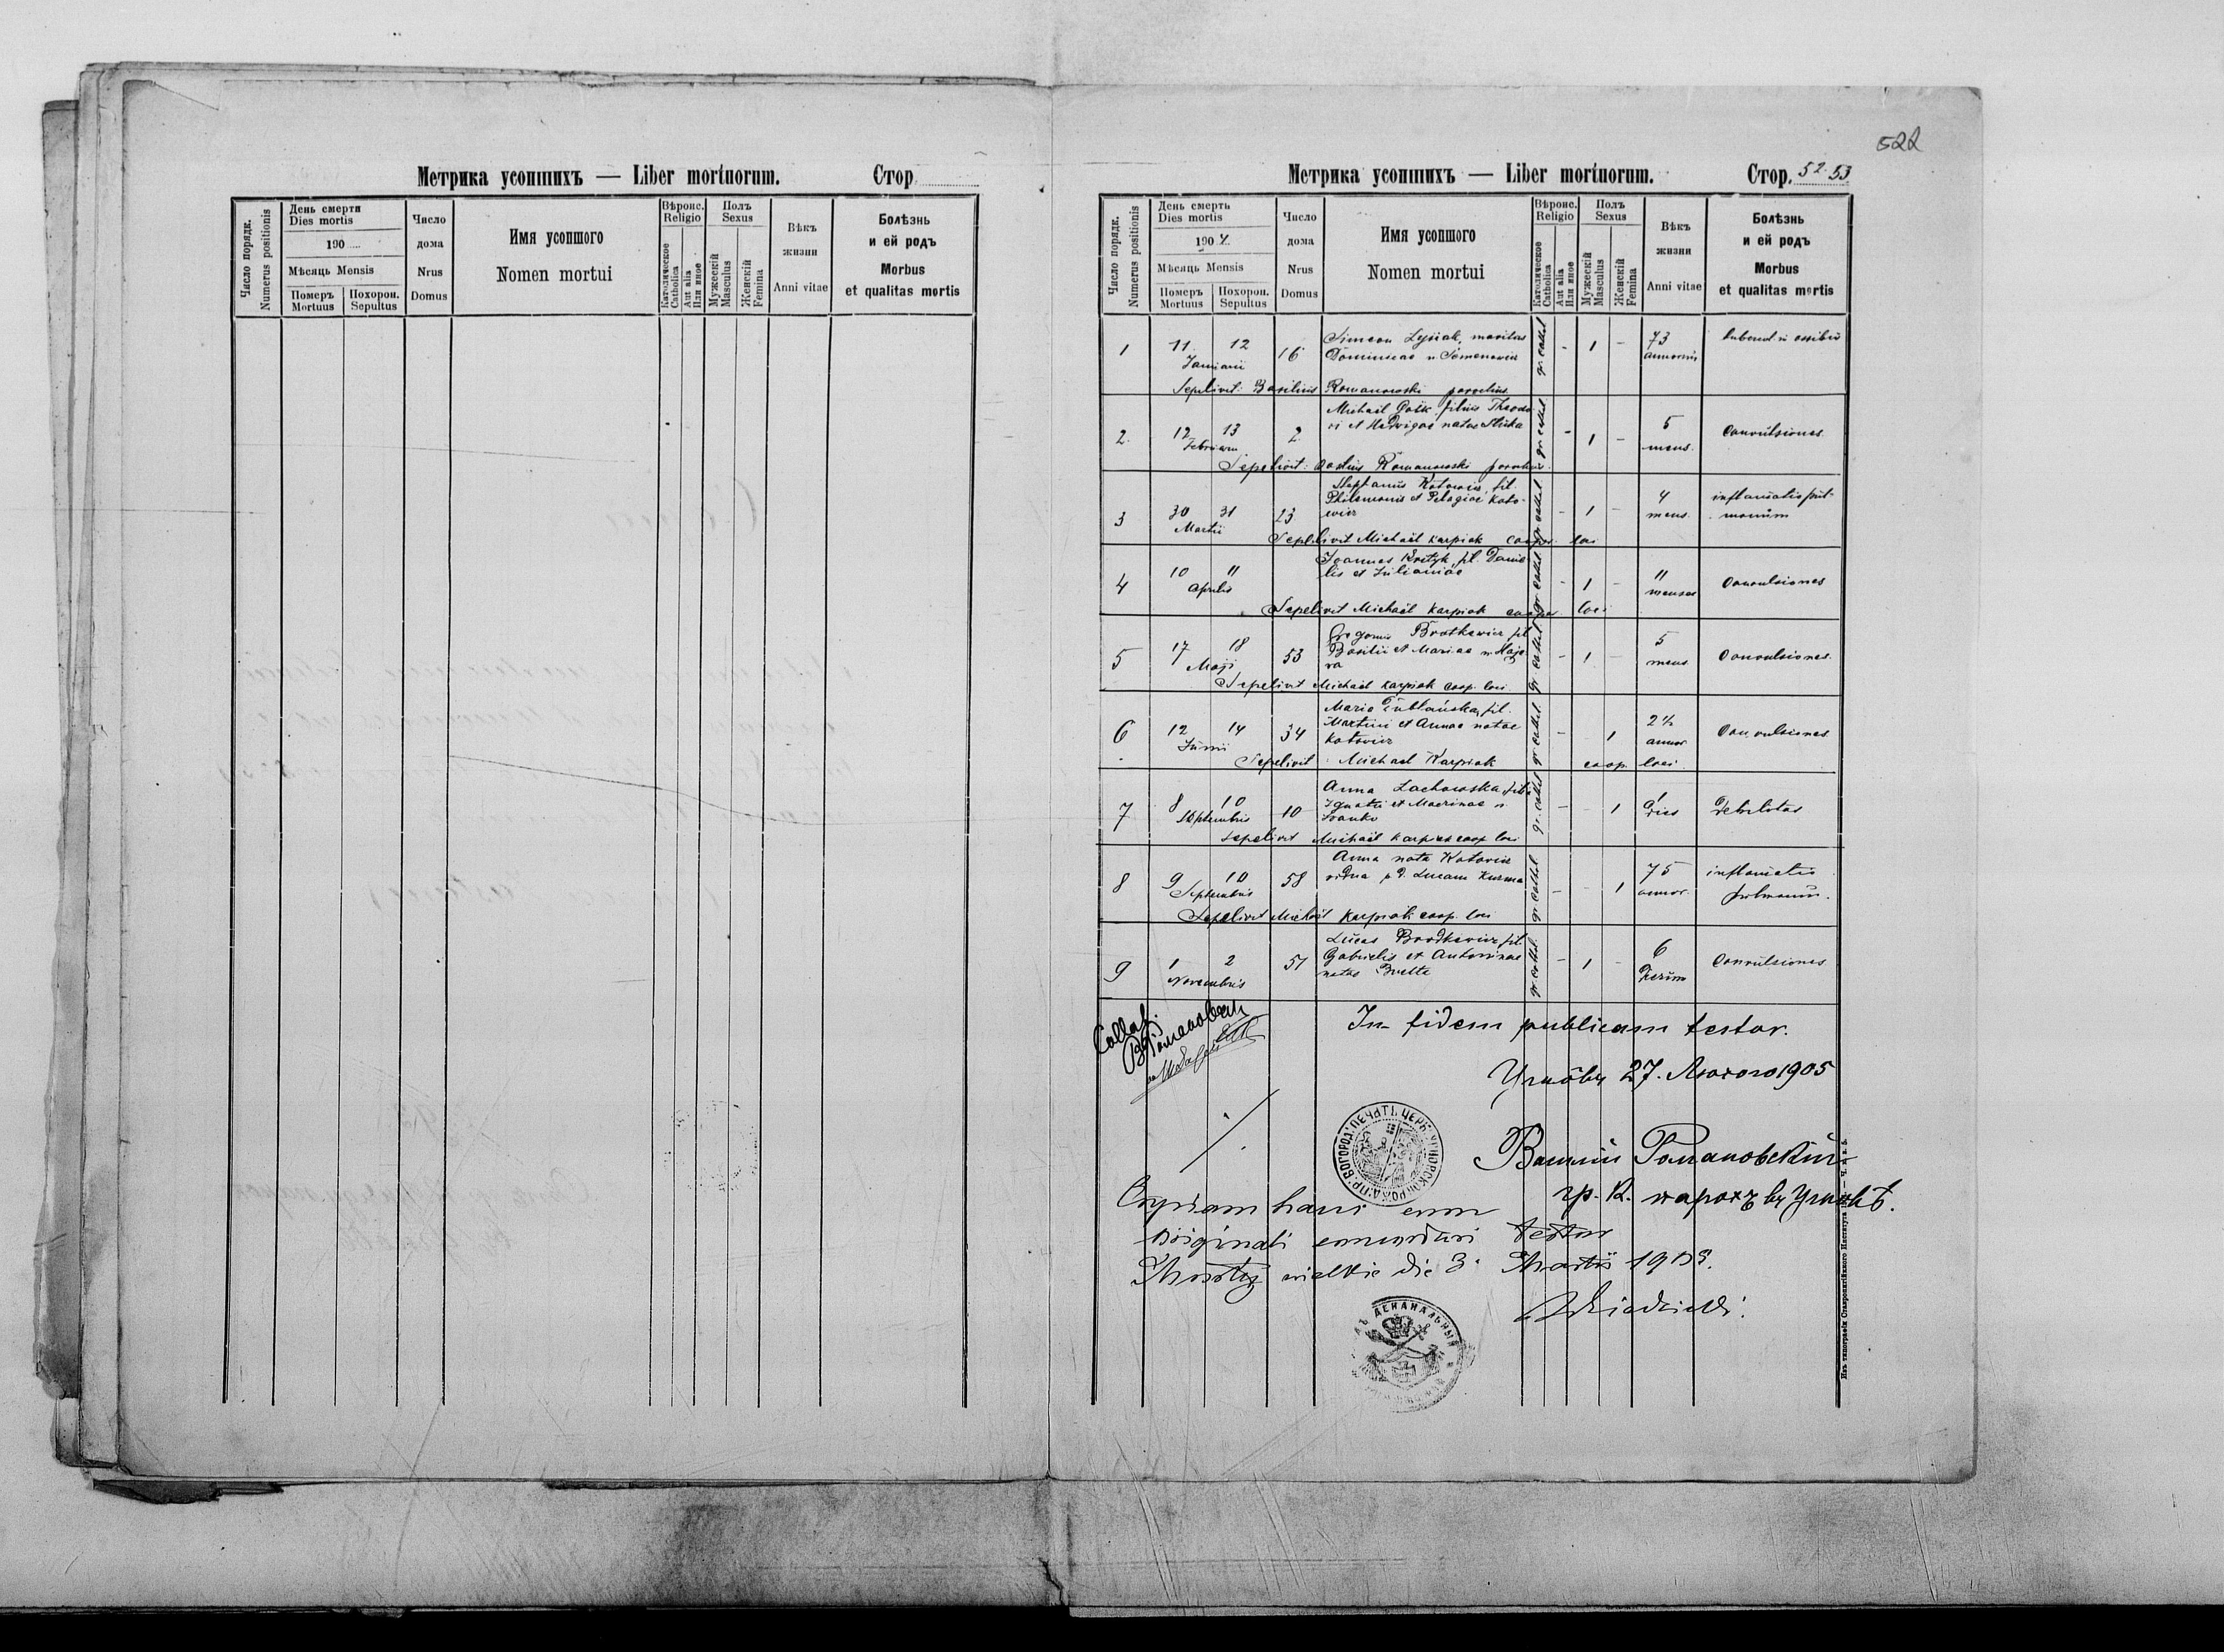 522
Метрика усопшихъ — Liber mortuorum. Стор.
Число порядк.
Numerus positionis
День смерти
Dies mortis
190
Мѣсяць Mensis
Померъ
Mortuus
Похорон.
Sepultus
Число
дома
Nrus
Domus
Имя усопшого
Nomen mortui
Вѣроис.
Religio
Католическое
Catholica
Aut alia
Или иное
Полъ
Sexus
Мужескій
Masculus
Женскій
Femina
Вѣкъ
жизни
Anni vitae
Болѣзнь
и ей родъ
Morbus
et qualitas mortis
Метрика усопшихъ — Liber mortuorum. Стор. 52 53
Число порядк.
Numerus positionis
День смерть
Dies mortis
1904
Мѣсяць Mensis
Померъ
Mortuus
Похорон.
Sepultus
Число
дома
Nrus
Domus
Имя усопшого
Nomen mortui
Вѣроис.
Religio
Католическое
Catholica
Aut alia
Или иное
Полъ
Sexus
Мужескій
Masculus
Женскій
Femina
Вѣкъ
жизни
Anni vitae
Болѣзнь
и ей родъ
Morbus
et qualitas mortis
1 11 12 16 Simeon Lysiak, maritus gr. cathol - 1 - 73
Januarii annorum
Sepelivit: Basilius Romanowski parochus
2. 12 13 2 Michael filius Theodo-
ri et Hedvigae natae gr. cathol - 1 - 5 Convulsiones.
mens.
Sepelivit: Romanowski
3 30 31 23 Stephanus Kotowicz, fil.
Philemonis et Pelagiae Koto-
wicz gr. cathol - 1 - 4 inflamatio pul-
Martii mens. monum
Sepelivit Michaël Karpiak coop. loci
4 10 11 Joannes fil. Danie-
lis et Julianiae gr. cathol - 1 - 11 Convulsiones
Aprilis menses
Sepelivit Michaël Karpiak loci
5 17 18 53 Brotkewicz fil
Basilii et Mariae n. Haje-
ra gr. cathol. - 1 - 5 Convulsiones.
Maji mens
Sepelivit Michaël Karpiak coop. loci
6 12 14 34 Maria fil.
Martini et Annae natae
Kotowicz gr. cathol. - 1 2½ Convulsiones
Junii annor
Sepelivit Michael Karpiak coop. loci
7 8 10 10 Anna Lachowska, filia
Ignatii et Macrinae n.
Iwanko gr. cathol - - 1 1 Debilitas
Septembris dies
Sepelivit Michaël coop loci
8 9 10 58 Anna nata Kotowicz
vidua p. d. Lucam gr. cathol. - - 1 75 inflamatio
Septembris annor pulmonum.
Sepelivit Michaël Karpiak coop. loci
9 1 2 51 Lucas Brodkewicz fil
Gabrielis et Antoninae
natae gr. cathol. - 1 - 6 Convulsiones
Novembris dierum
In fidem publicam testor.
27. Лютого 1905
Василій Романовскій
гр. к. парохъ въ
Copiam hanc cum
originali testor
die 3. Martii
Изъ типографіи Ставропигійского Института